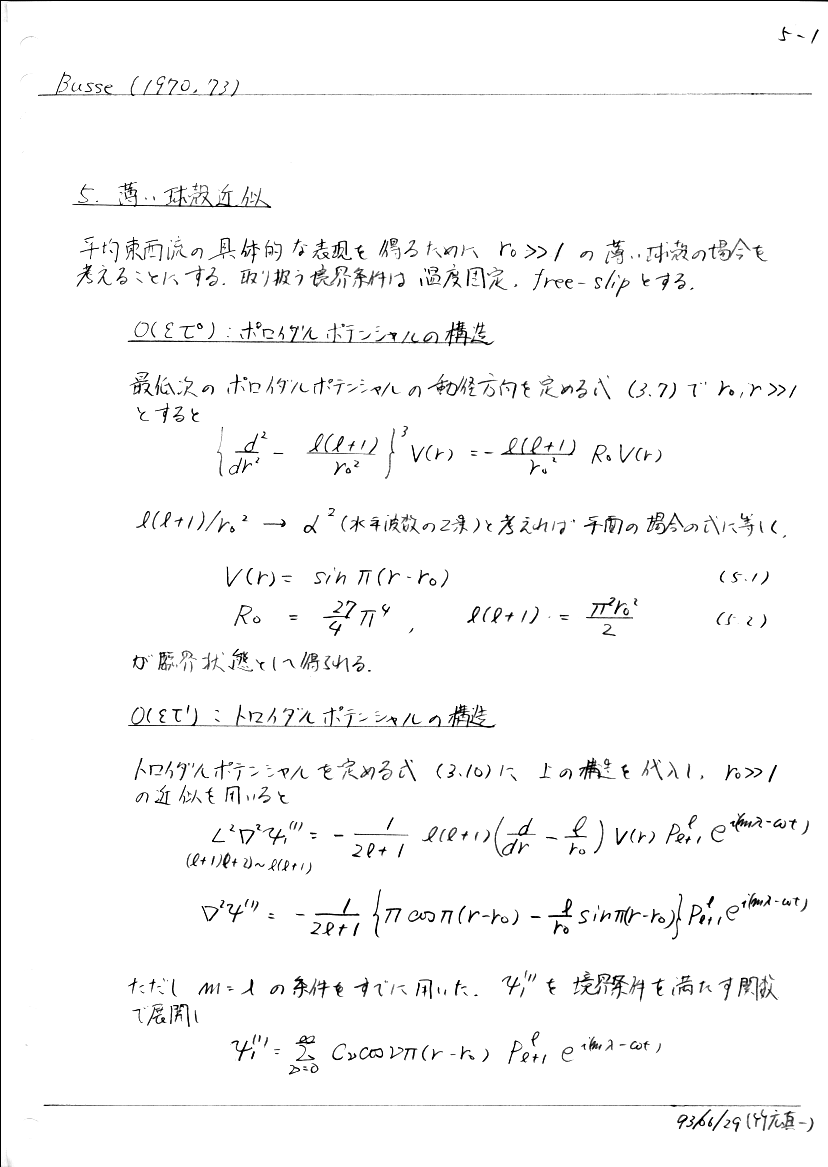 5-1
Busse (1970, 73)
5. 薄い球殻近似
平均東西流の具体的な表現を得るために r₀≫1 の薄い球殻の場合を
考えることにする. 取り扱う境界条件は温度固定, free-slipとする.
O(ετ⁰) : ポロイダルポテンシャルの構造
最低次のポロイダルポテンシャルの動径方向を定める式 (3.7) で r₀, r≫1
とすると
{ d²/dr² - l(l+1)/r₀² }³ V(r) = - l(l+1)/r₀² R₀ V(r)
l(l+1)/r₀² → α² (水平波数の2乗) と考えれば 平面の場合の式に等しく,
V(r) = sin π(r-r₀) (5.1)
R₀ = 27/4 π⁴ , l(l+1) = π²r₀²/2 (5.2)
が臨界状態として得られる.
O(ετ¹) : トロイダルポテンシャルの構造
トロイダルポテンシャルを定める式 (3.10) に 上の構造を代入し, r₀≫1
の近似を用いると
L²∇²Ψ₁⁽¹⁾ = - 1/(2l+1) l(l+1) (d/dr - l/r₀) V(r) Pₗ₊₁ˡ e^{i(mλ-ωt)}
(l+1)(l+2)~l(l+1)
∇²Ψ⁽¹⁾ = - 1/(2l+1) {π cos π(r-r₀) - l/r₀ sin π(r-r₀)} Pₗ₊₁ˡ e^{i(mλ-ωt)}
ただし m=l の条件をすでに用いた. Ψ₁⁽¹⁾ を境界条件を満たす関数
で展開し
Ψ₁⁽¹⁾ = Σ_{ν=0}^{∞} Cν cos νπ(r-r₀) Pₗ₊₁ˡ e^{i(mλ-ωt)}
93/06/29 (竹広真一)